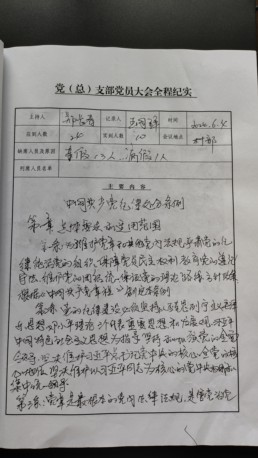 党（总）支部党员大会全程纪实
主持人 记录人 时间 2020.6.4
应到人数 实到人数 10 会议地点 村部
缺席人员及原因 事假 人 病假1人
列席人员名单
主要内容
中国共产党纪律处分条例
第一章
第一条 为维护党章和其他党内法规，严肃党的纪
律，纯洁党的组织，保障党员民主权利，教育党员遵纪
守法，维护党的团结统一，保证党的路线、方针、政策
根据《中国共产党章程》，制定本条例
第二条 党的纪律建设必须坚持以马克思列宁主义、毛泽
东思想、邓小平理论、三个代表重要思想、科学发展观、习近平
中国特色社会主义思想为指导，坚持和加强党的全面
领导，坚决维护习近平总书记党中央的核心、全党的核
心地位，坚决维护以习近平同志为核心的党中央权威和
集中统一领导
第三条 党章是最根本的党内法规，是管党治党